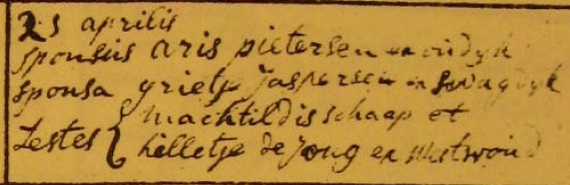 25 aprilis
sponsus aris pietersen ex oudyk
sponsa grietje Jaspersen ex Swagdyk
machtildis schaap et
testes { hilletje de Jong ex westwoud